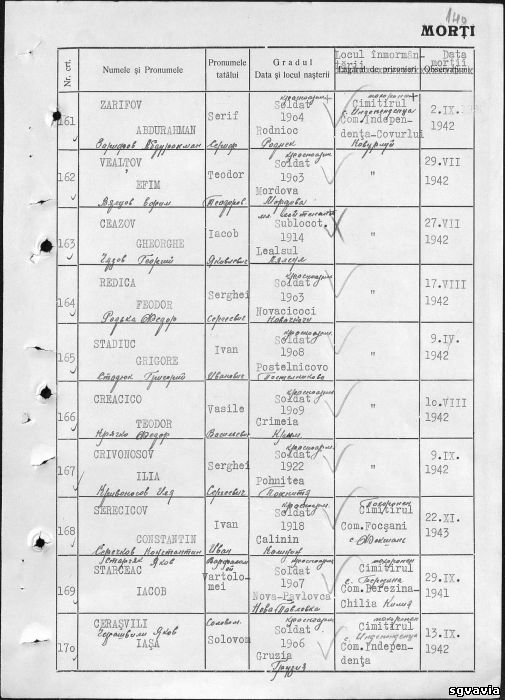 140
MORȚI
Nr. crt.
Numele și Pronumele
Pronumele tatălui
Gradul
Data și locul nașterii
Locul înmormân-
tării
Lagărul de prizonieri
Data
morții
Observațiuni
161
ZARIFOV
ABDURAHMAN
Зарифов Абдурахман
Serif
Сериф
красноарм.
Soldat
19o4
Rodnioc
Родник
похоронен
Cimitirul
с. Индепенденца
Com.Indepen-
denţa-Covurlui
Ковурлуй
2.IX.
1942
162
VEALTOV
EFIM
Вялцов Ефим
Teodor
Теодоров
красноарм.
Soldat
19o3
Mordova
Мордова
"
29.VII
1942
163
CEAZOV
GHEORGHE
Чязов Георгий
Iacob
Яковлевич
мл. лейтенант
Sublocot.
1914
Lealsul
Лялсул
"
27.VII
1942
164
REDICA
FEODOR
Редька Федор
Serghei
Сергеевич
красноарм.
Soldat
19o3
Novacicoci
"
17.VIII
1942
165
STADIUC
GRIGORE
Стадюк Григорий
Ivan
Иванович
красноарм.
Soldat
19o8
Postelnicovo
Постельниково
"
9.IV.
1942
166
CREACICO
TEODOR
Крячко Федор
Vasile
Васильевич
красноарм.
Soldat
19o9
Crimeia
Крым
"
1o.VIII
1942
167
CRIVONOSOV
ILIA
Кривоносов Иля
Serghei
Сергеевич
красноарм.
Soldat
1922
Pohnitea
Похнитя
"
9.IX.
1942
168
SERECICOV
CONSTANTIN
Серечков Константин
Ivan
Иван
красноарм.
Soldat
1918
Calinin
Калинин
похоронен
Cimitirul
Com.Focşani
с. Фокшань
22.XI.
1943
169
Старчак Яков
STARCEAC
IACOB
Варфоломей
Vartolo-
mei
красноарм.
Soldat
19o7
Nova-Pavlovca
Нова-Павловка
похоронен
Cimitirul
с. Березина
Com.Berezina-
Chilia Килия
29.IX.
1941
17o
CERAŞVILI
Чарашвили Яков
IAŞA
Соломон.
Solovom
красноарм.
Soldat
19o6
Gruzia
Грузия
похоронен
Cimitirul
с. Индепенденца
Com.Indepen-
denţa
13.IX.
1942
sgvavia